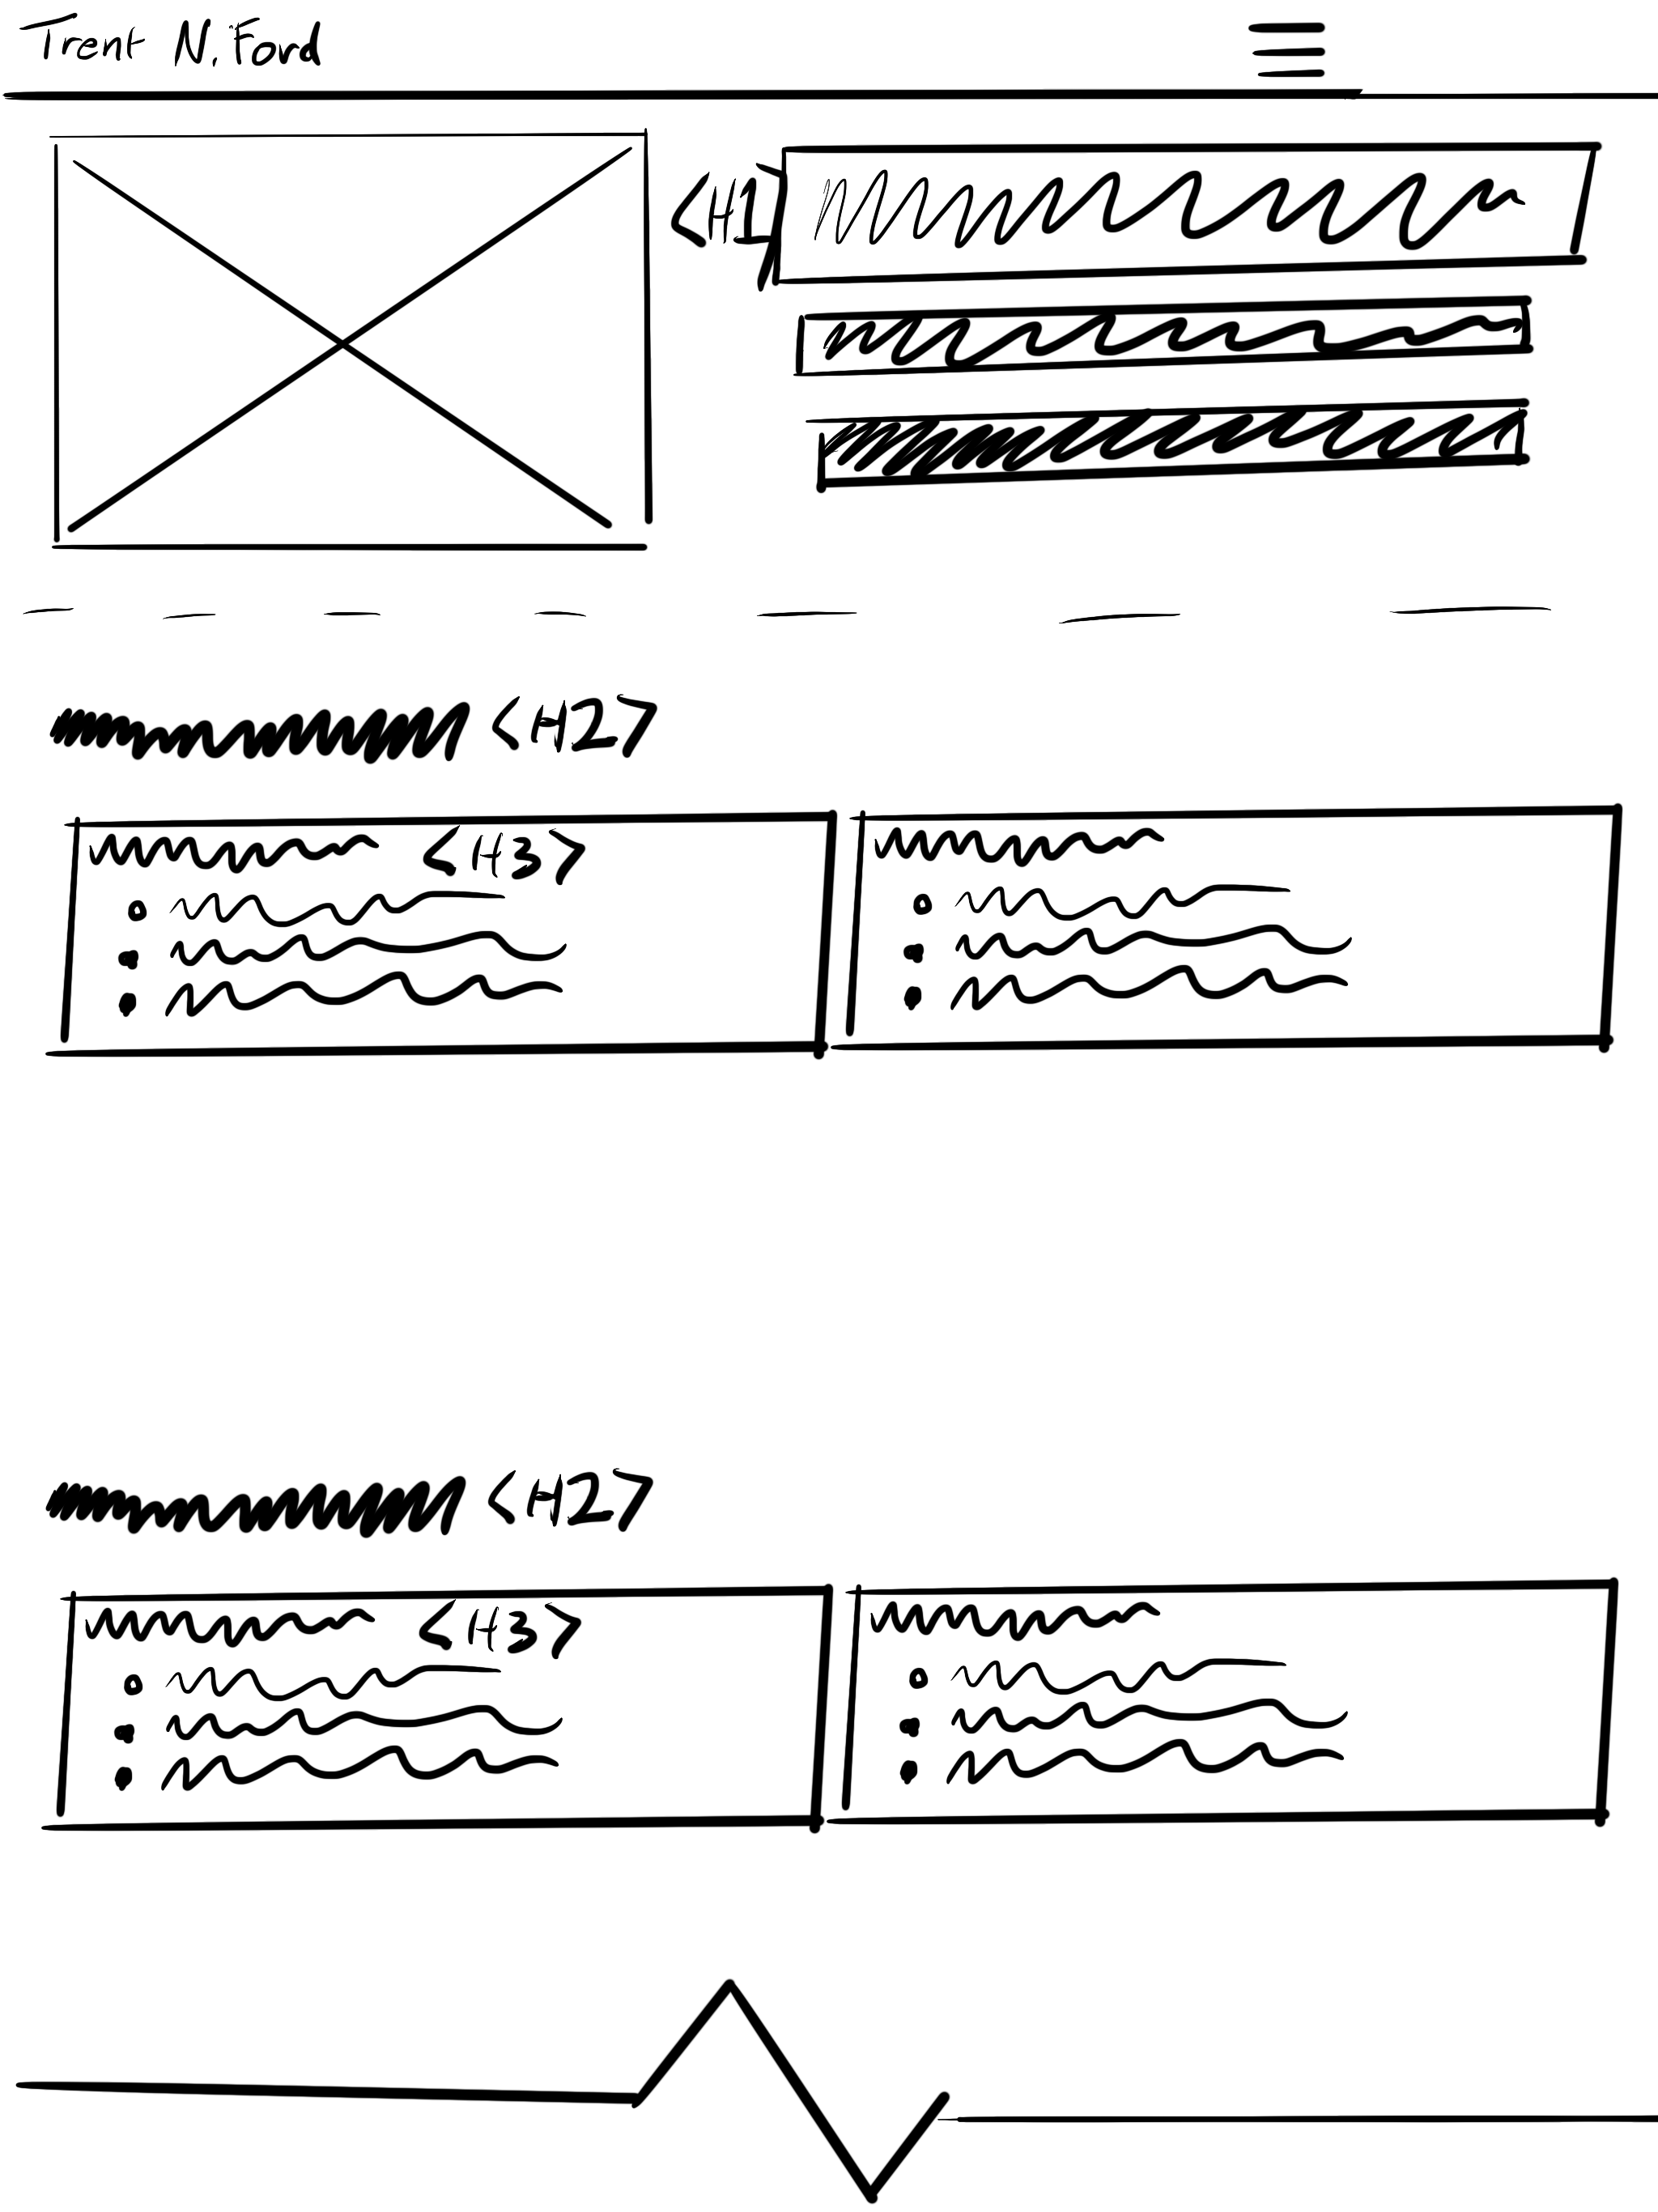 Trent N. Foad
<H1>
<H2>
<H3>
<H2>
<H3>